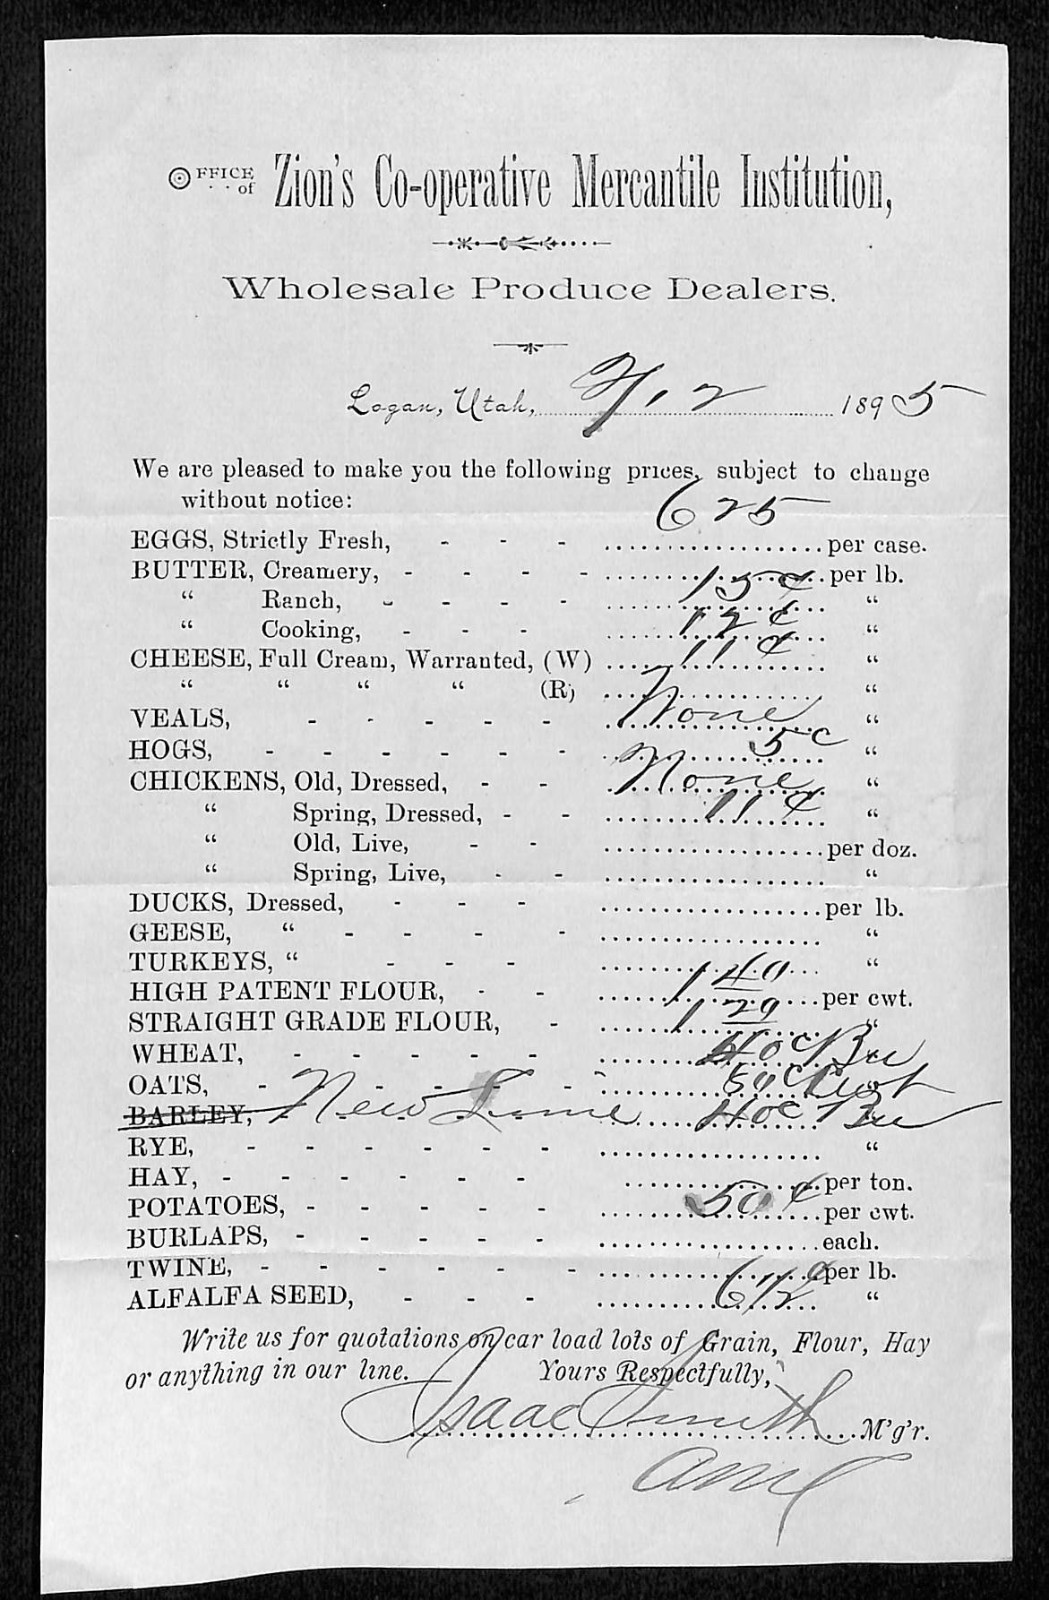 OFFICE of Zion's Co-operative Mercantile Institution,
Wholesale Produce Dealers.
Logan, Utah, 2 1895
We are pleased to make you the following prices, subject to change
without notice:
EGGS, Strictly Fresh, - - - 625 per case.
BUTTER, Creamery, - - - - 15¢ per lb.
“ Ranch, - - - - 12¢ “
“ Cooking, - - - 11¢ “
CHEESE, Full Cream, Warranted, (W) “
“ “ “ “ (R) None “
VEALS, - - - - - 5c “
HOGS, - - - - - - None “
CHICKENS, Old, Dressed, - - 11¢ “
“ Spring, Dressed, - - “
“ Old, Live, - - per doz.
“ Spring, Live, - - “
DUCKS, Dressed, - - - per lb.
GEESE, “ - - - - “
TURKEYS, “ - - - “
HIGH PATENT FLOUR, - - 1 40 per cwt.
STRAIGHT GRADE FLOUR, - 1 20 “
WHEAT, - - - - - 40c Bu
OATS, - - - - - 80c Cwt
BARLEY, New 40c Bu
RYE, - - - - - - “
HAY, - - - - - - per ton.
POTATOES, - - - - - 50¢ per cwt.
BURLAPS, - - - - - each.
TWINE, - - - - - - per lb.
ALFALFA SEED, - - - 6 1/2¢ “
Write us for quotations on car load lots of Grain, Flour, Hay
or anything in our line. Yours Respectfully,
Isaac Smith M'g'r.